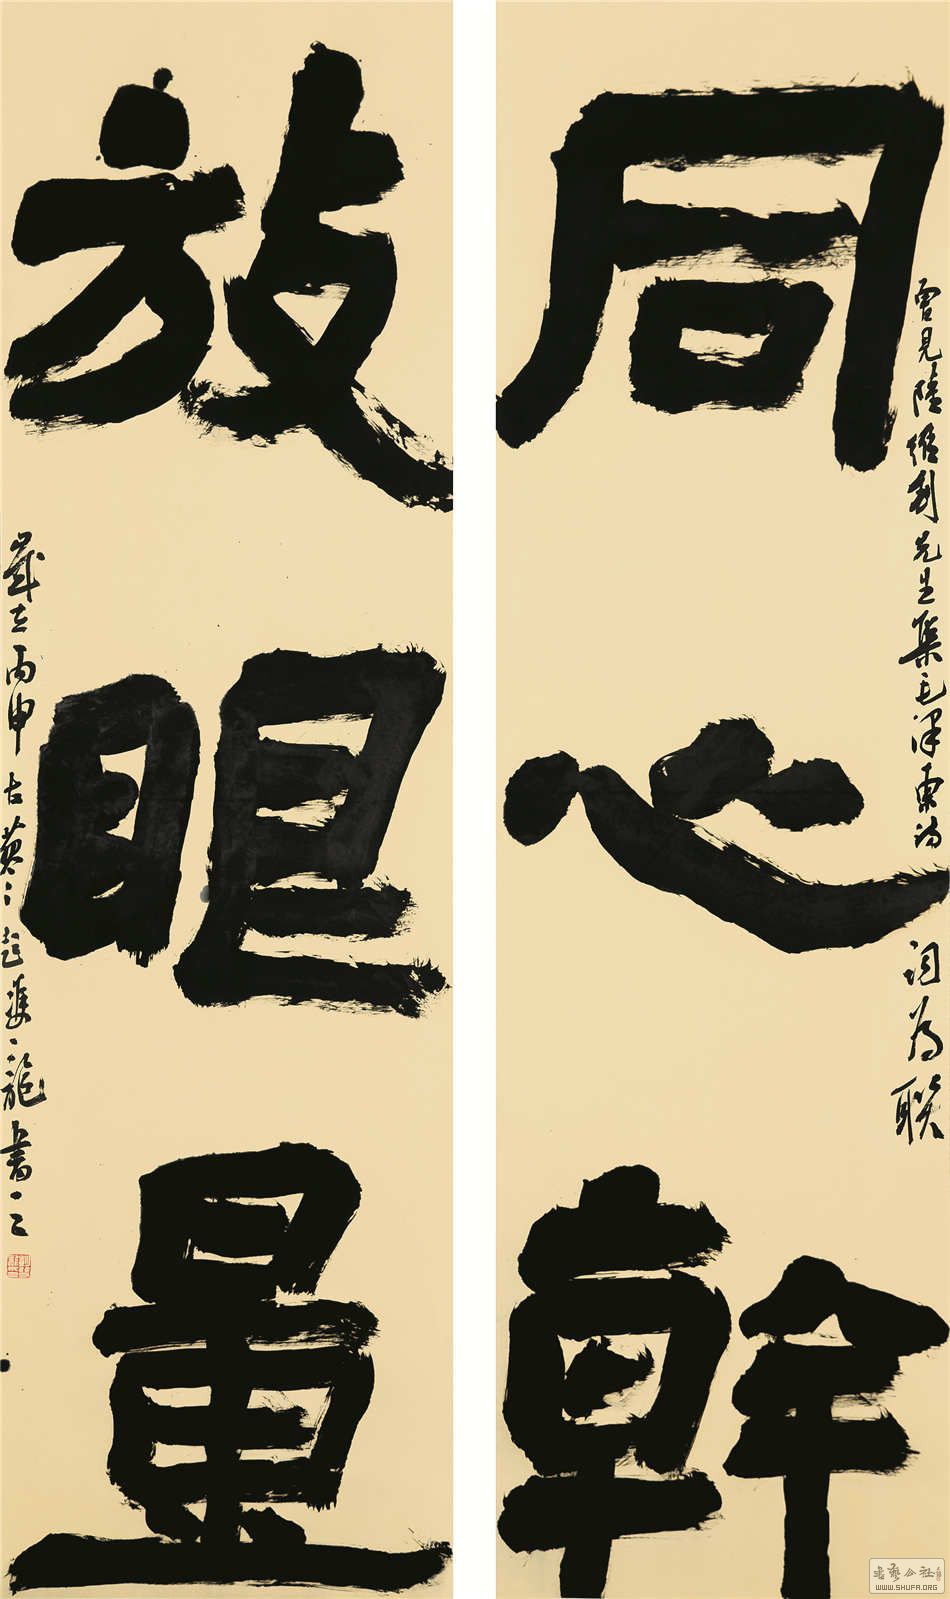 同心幹
曾見陸維釗先生集毛澤東詩詞為联
放眼量
歲在丙申古 龍書
书艺公社
WWW.SHUFA.ORG